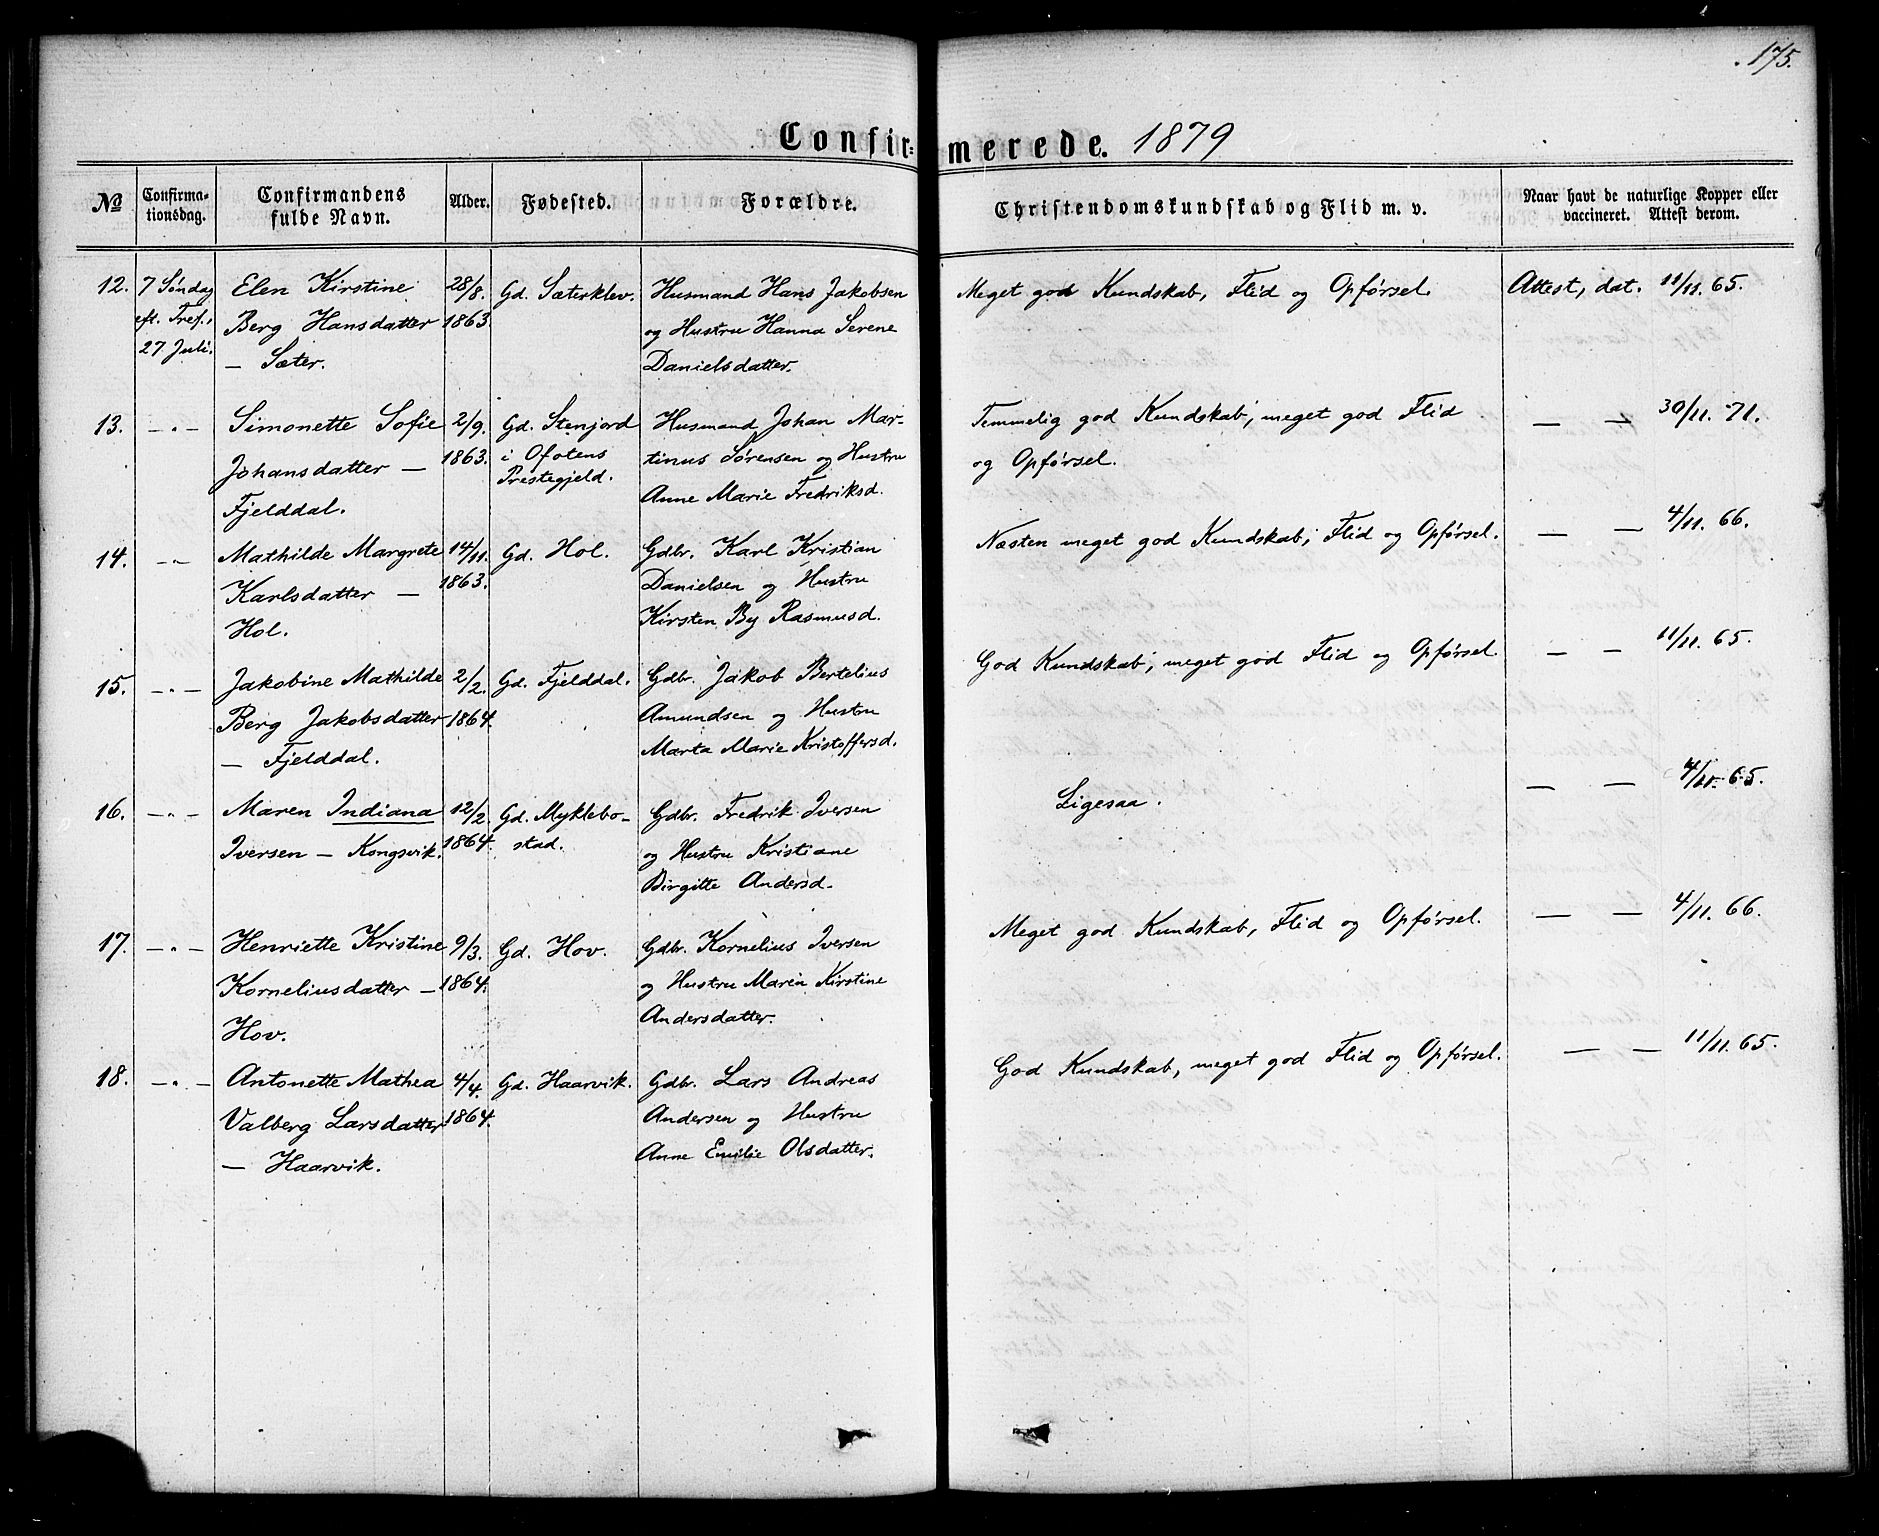 175.
Confirmerede. 1879
No
Confirmationsdag.
Confirmandens fulde Navn.
Alder.
Fødested.
Forældre.
Christendomskundskab og Flid m. v.
Naar havt de naturlige Kopper eller vaccineret. Attest derom.
12. 7 Søndag Elen Kirstine 28/8. Gd. Sæterklev. Husmand Hans Jakobsen Meget god Kundskab, Flid og Opførsel. Attest, dat. 11/11. 65.
eft. Tref., Berg Hansdatter 1863. og Hustru Hanna Serene
27 Juli. — Sæter. Danielsdatter.
13. — " — Simonette Sofie 2/9. Gd. Stenjord Husmand Johan Mar- Temmelig god Kundskab, meget god Flid — — 30/11. 71.
Johansdatter — 1863. i Ofotens tinus Sørensen og Hustru og Opførsel.
Fjelddal. Prestegjeld. Anne Marie Fredriksd.
14. — " — Mathilde Margrete 14/11. Gd. Hol. Gdbr. Karl Kristian Næsten meget god Kundskab, Flid og Opførsel. — — 4/11. 66.
Karlsdatter — 1863. Danielsen og Hustru
Hol. Kirsten By Rasmusd.
15. — " — Jakobine Mathilde 2/2. Gd. Fjelddal. Gdbr. Jakob Bertelius God Kundskab, meget god Flid og Opførsel. — — 11/11. 65.
Berg Jakobsdatter 1864. Amundsen og Hustru
— Fjelddal. Marta Marie Kristoffersd.
16. — " — Maren Indiana 12/2. Gd. Myklebo- Gdbr. Fredrik Iversen Ligesaa. — — 4/11. 65.
Iversen — Kongsvik. 1864. stad. og Hustru Kristiane
Birgitte Andersd.
17. — " — Henriette Kristine 9/3. Gd. Hov. Gdbr. Kornelius Iversen Meget god Kundskab, Flid og Opførsel. — — 4/11. 66.
Korneliusdatter — 1864. og Hustru Maren Kirstine
Hov. Andersdatter.
18. — " — Antonette Mathea 4/4. Gd. Haarvik. Gdbr. Lars Andreas God Kundskab, meget god Flid og Opførsel. — — 11/11. 65.
Valberg Larsdatter 1864. Andersen og Hustru
— Haarvik. Anne Emilie Olsdatter.